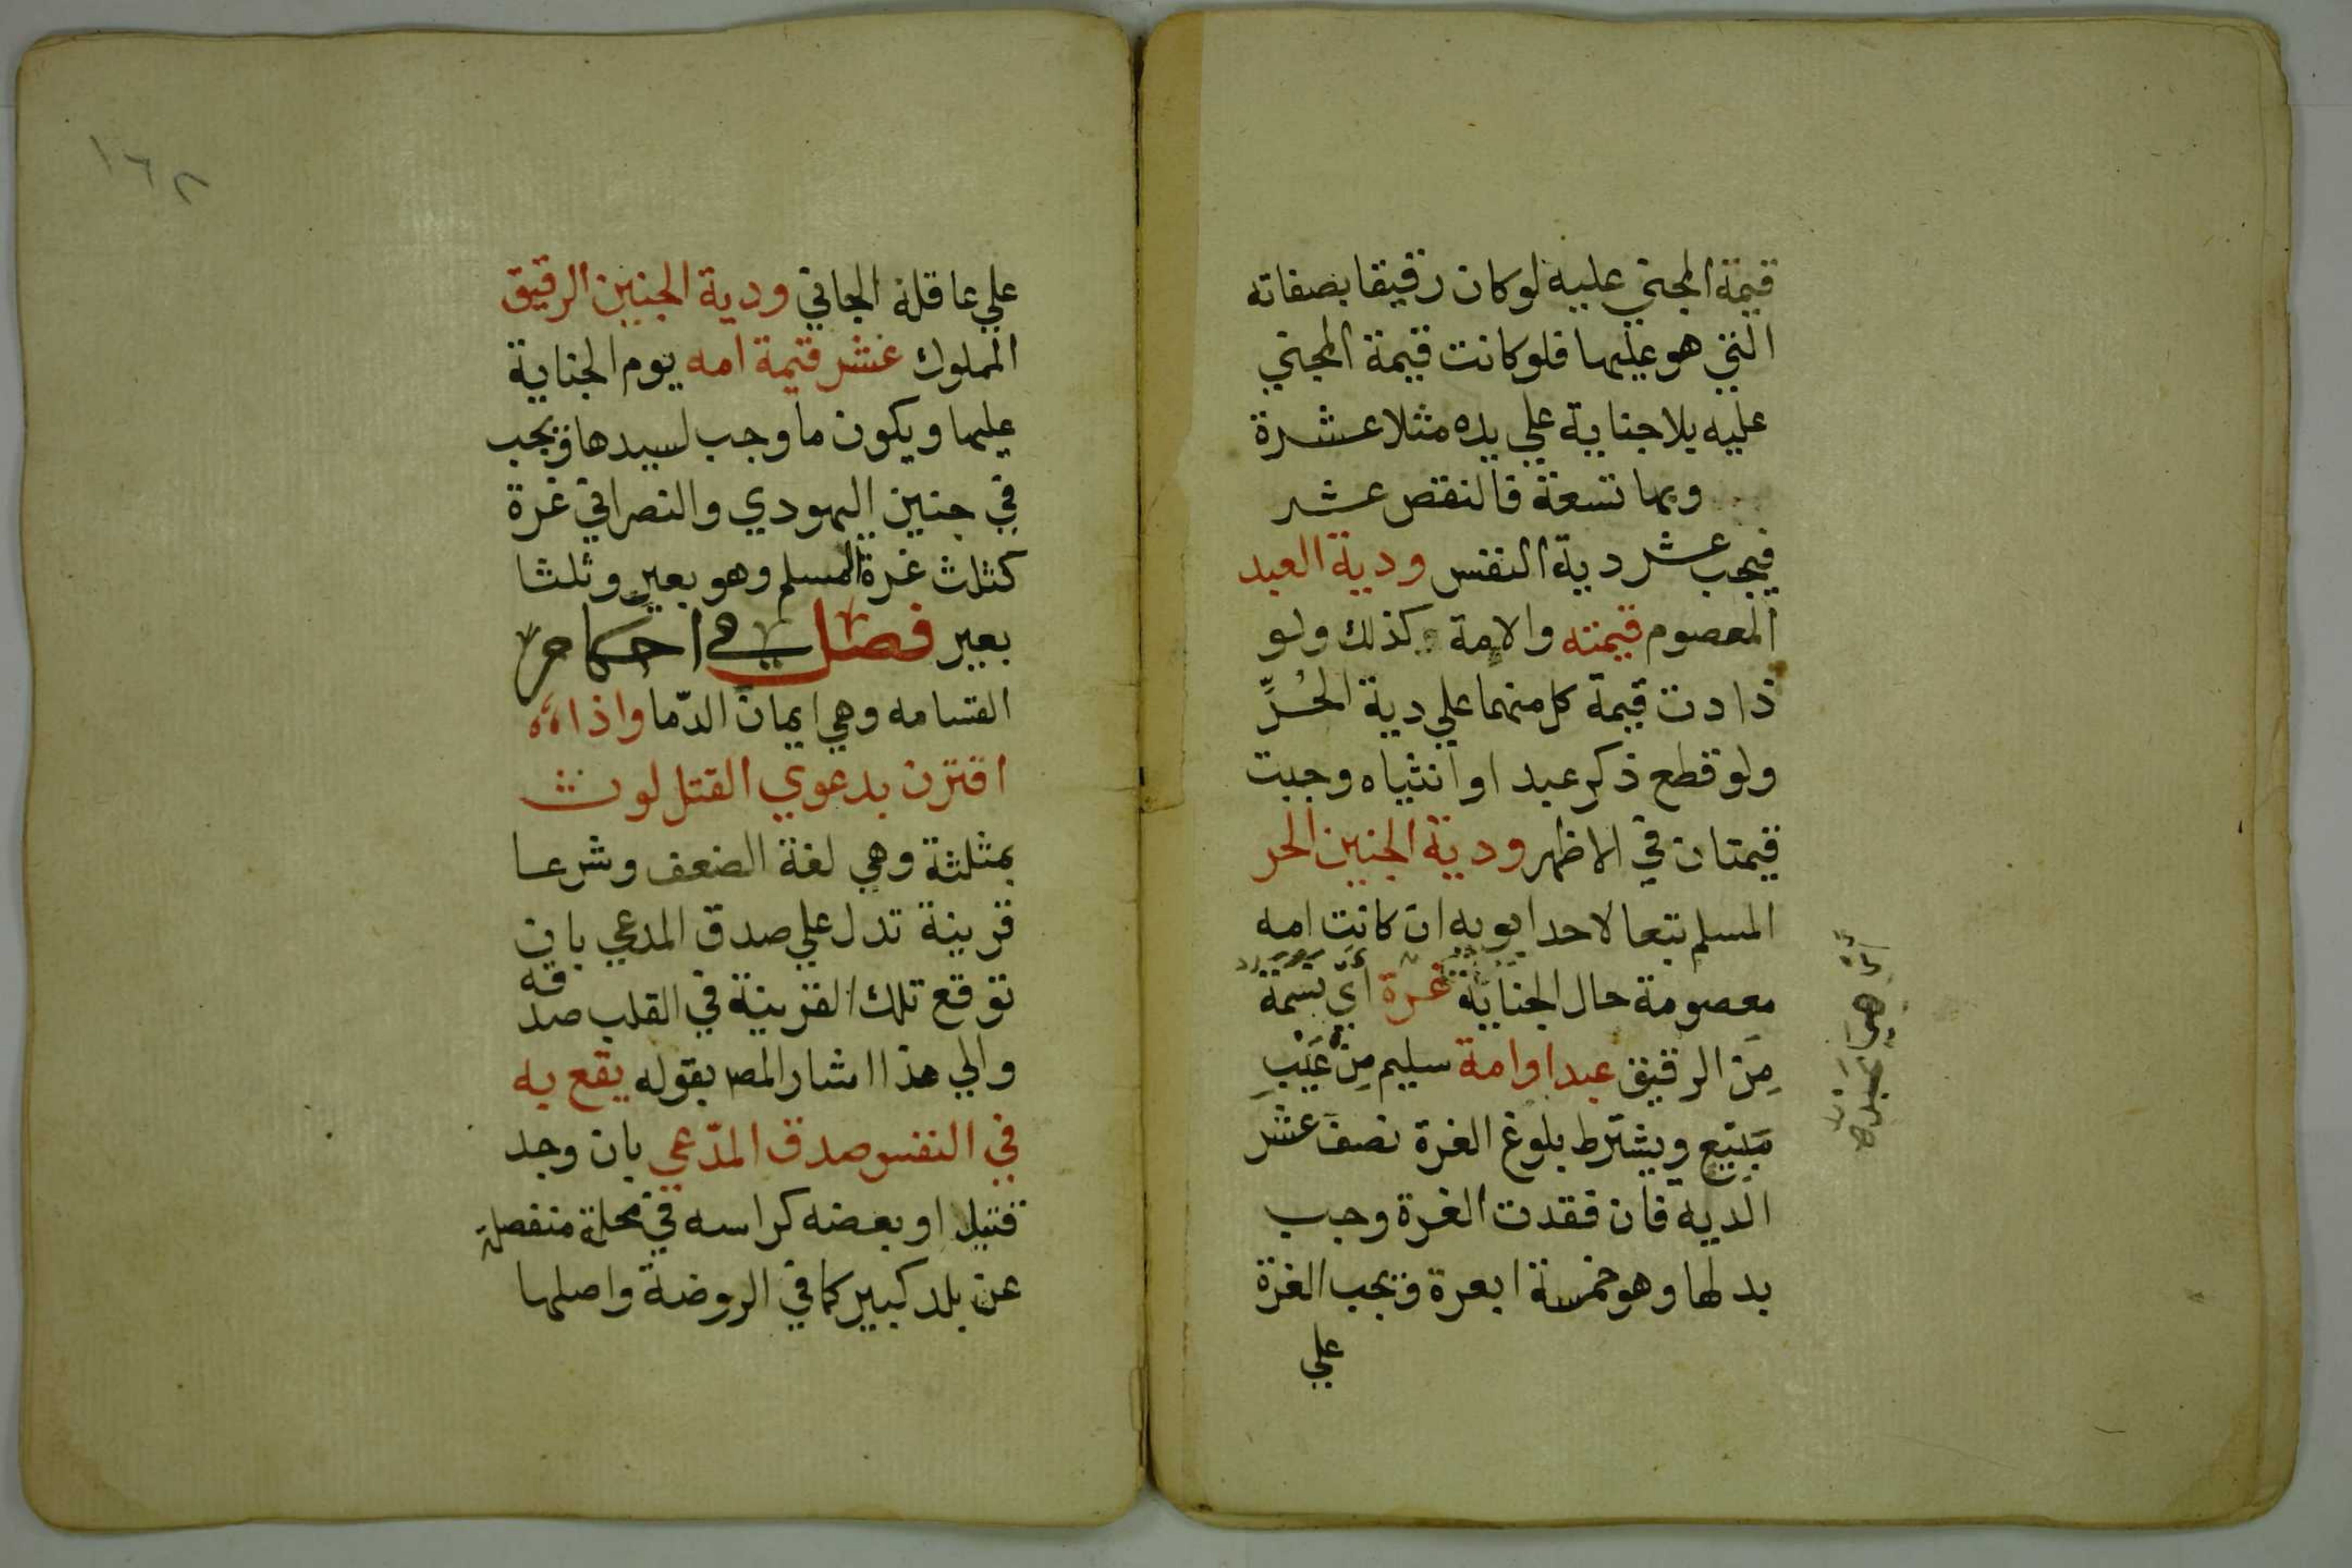 قيمة المجني عليه لو كان رقيقا بصفاته
التي هو عليها فلو كانت قيمة المجني
عليه بلا جناية علي يده مثلا عشرة
وبها تسعة فالنقص عشر
فيجب عشر دية النفس ودية العبد
المعصوم قيمته والامة كذلك ولو
زادت قيمة كل منهما علي دية الحُرِّ
ولو قطع ذكر عبد او انثياه وجبت
قيمتان في الاظهر ودية الجنين الحر
المسلم تبعا لاحد ابويه ان كانت امه
معصومة حال الجناية غرة اي نسمة
مِنَ الرقيق عبد او امة سليم مِنْ عَيْبِ
مَبيع ويشترط بلوغ الغرة نصف عشر
الديه فان فقدت الغرة وجب
بدلها وهو خمسة ابعرة وتجب الغرة
علي
١٦٢
علي عاقلة الجاني ودية الجنين الرقيق
المملوك عشر قيمة امه يوم الجناية
عليها ويكون ما وجب لسيدها ويجب
في جنين اليهودي والنصراني غرة
كثلث غرة المسلم وهو بعير وثلثا
بعير فصل في احكام
القسامه وهي ايمان الدّما واذا
اقترن بدعوي القتل لوث
بمثلثة وهي لغة الضعف وشرعا
قرينة تدل علي صدق المدعي بان
توقع تلك القرينة في القلب صدقه
والي هذا اشار المص بقوله يقع به
في النفس صدق المدّعي بان وجد
قتيل او بعضه كراسه في محلة منفصلة
عن بلد كبير كما في الروضة واصلها